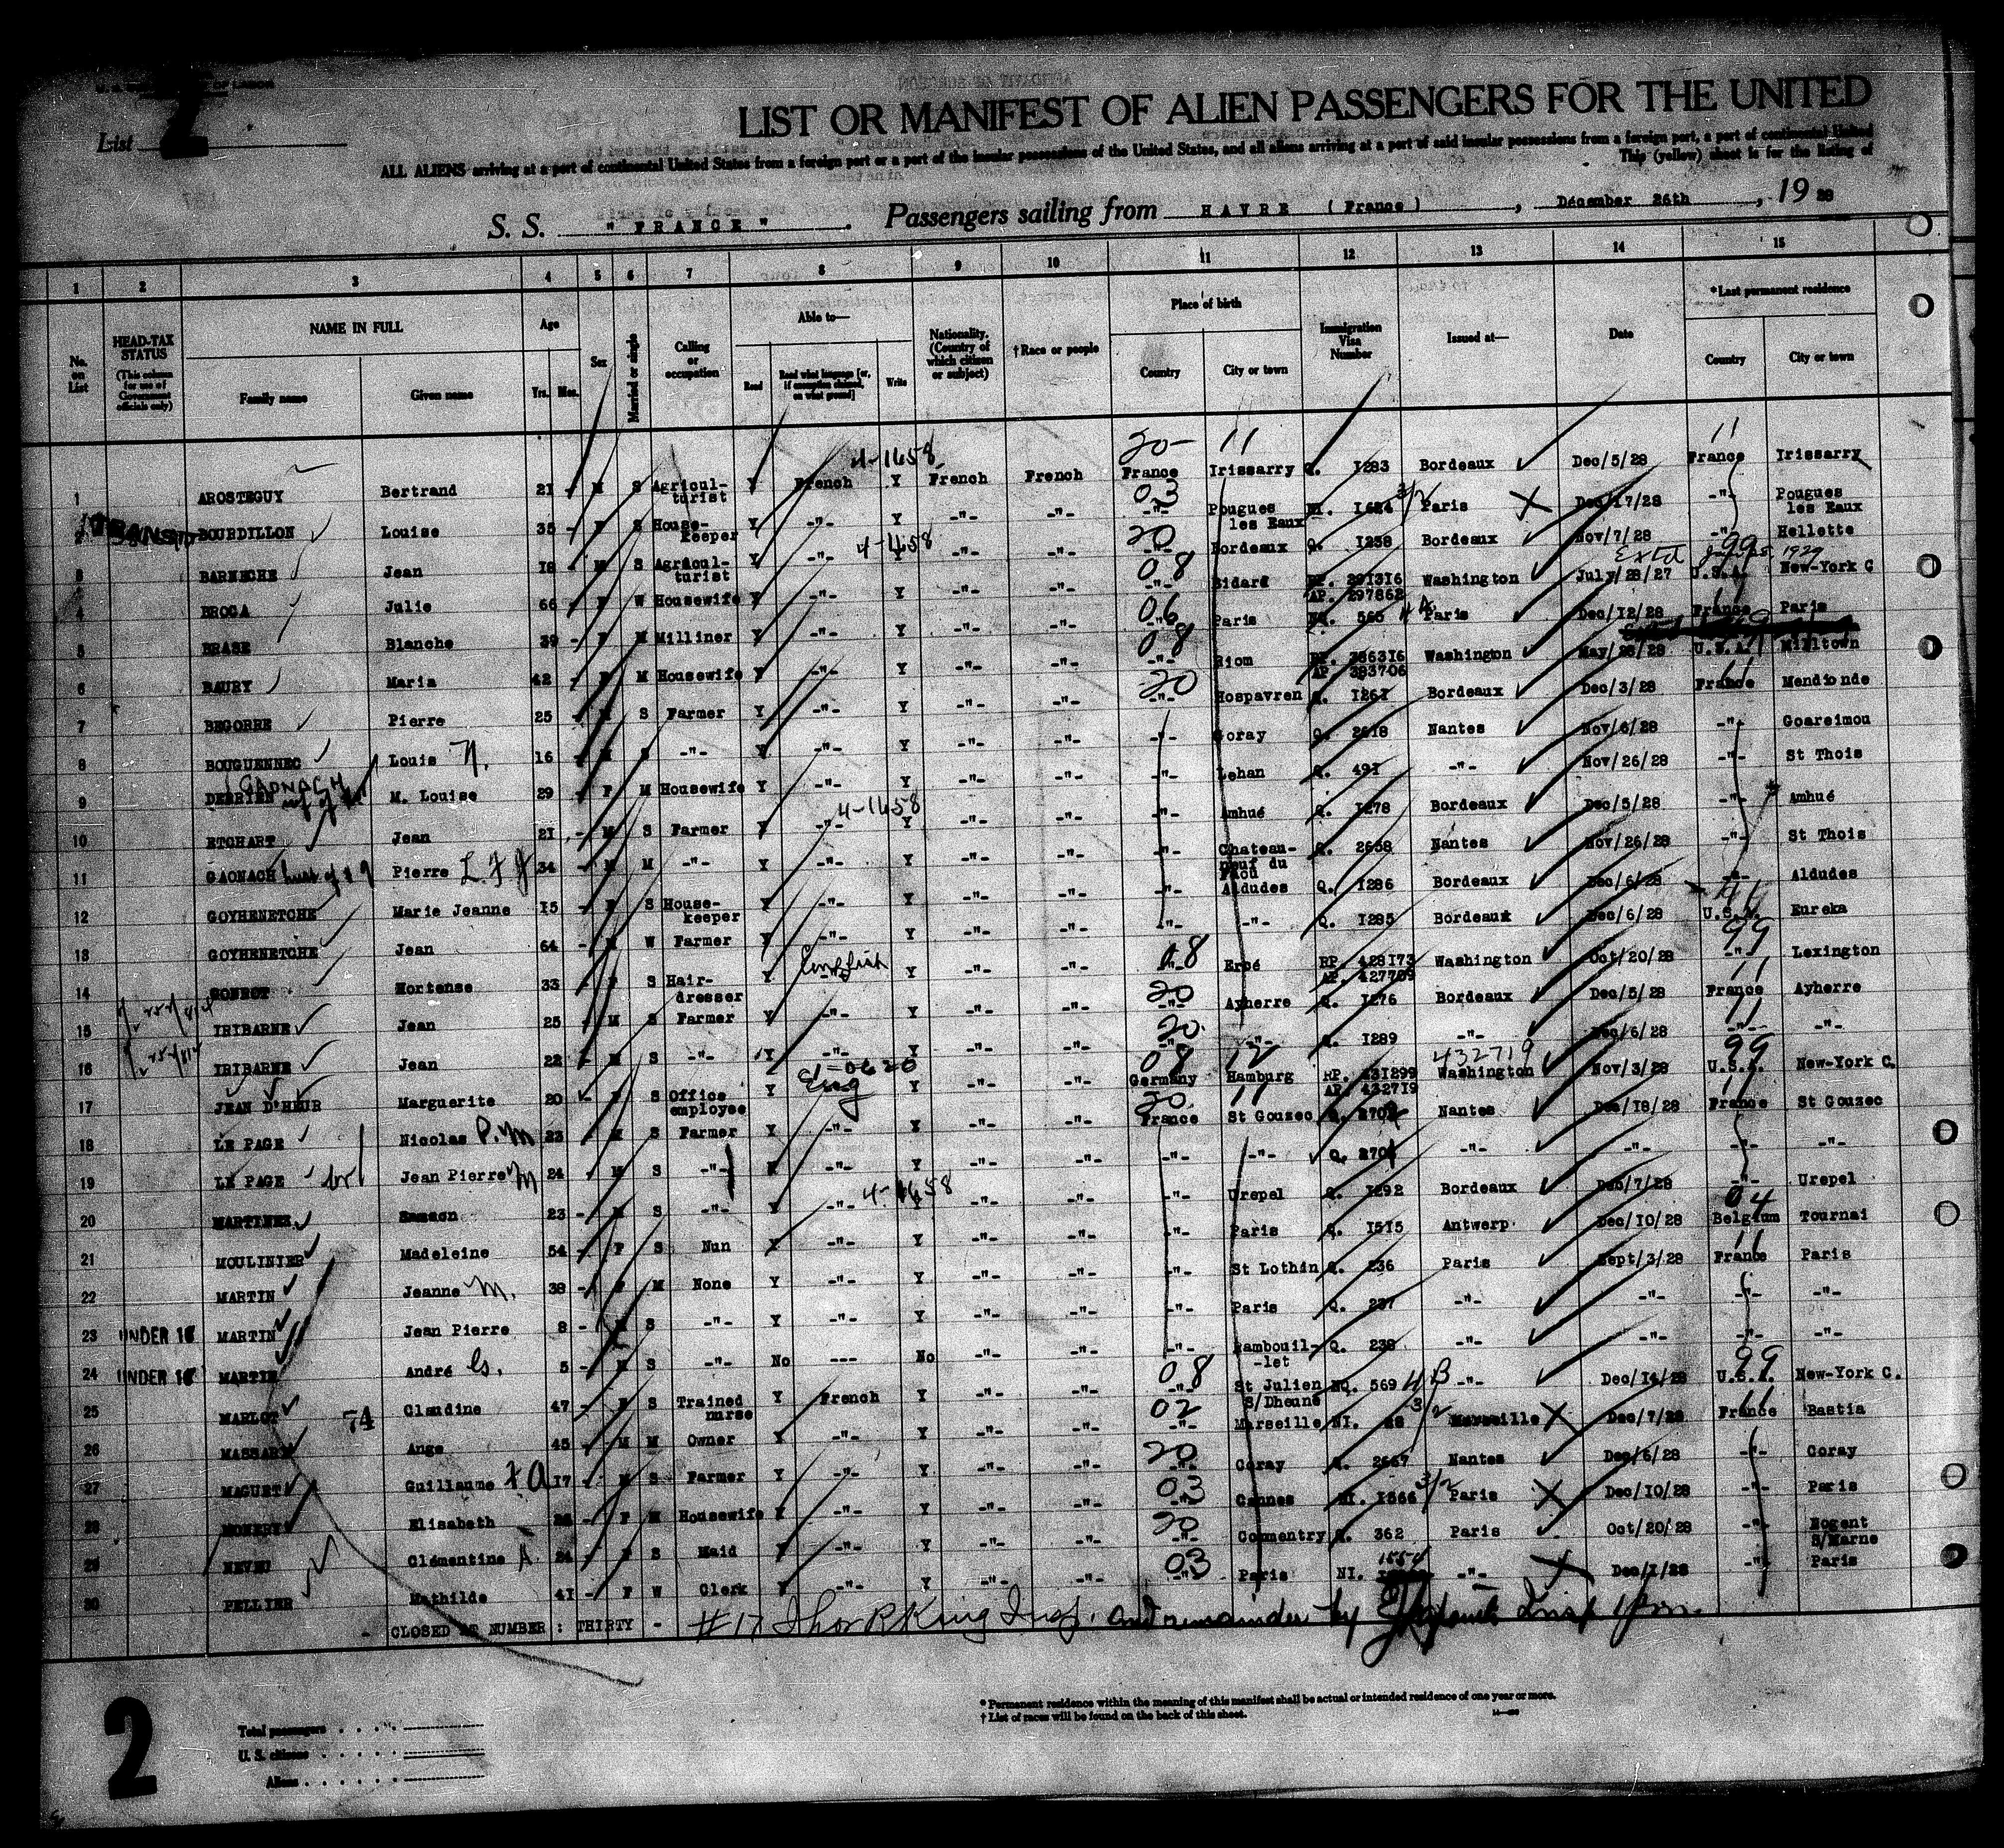 List 2
LIST OR MANIFEST OF ALIEN PASSENGERS FOR THE UNITED
ALL ALIENS arriving at a port of continental United States from a foreign port or a port of the insular possessions of the United States, and all aliens arriving at a port of said insular possessions from a foreign port, a port of continental United
This (yellow) sheet is for the listing of
S. S. "FRANCE". Passengers sailing from HAVRE (France), December 26th, 1928
1 2 3 4 5 6 7 8 9 10 11 12 13 14 15
No. on List
HEAD-TAX STATUS (This column for use of Government officials only)
NAME IN FULL Family name Given name
Age Yrs. Mos.
Sex
Married or single
Calling or occupation
Able to— Read Read what language [or, if exemption claimed, on what ground] Write
Nationality. (Country of which citizen or subject)
†Race or people
Place of birth Country City or town
Immigration Visa Number
Issued at—
Date
*Last permanent residence Country City or town
1 AROSTEGUY Bertrand 21 M S Agricul-turist Y French 4-1658 Y French French 20- France 11 Irissarry Q. 1283 Bordeaux Dec/5/28 11 France Irissarry
2 BOURDILLON Louise 35 F S House-keeper Y -"- Y -"- -"- 03 -"- Pougues les Eaux NI. 1624 3/2 Paris Dec/17/28 -"- Pougues les Eaux
3 BARNECHE Jean 18 M S Agricul-turist Y -"- Y -"- -"- 20 -"- Bordeaux Q. 1238 Bordeaux Nov/7/28 -"- Hellette
4 BROCA Julie 66 F W Housewife Y -"- Y -"- -"- 08 -"- Bidard RP. 291316 AP. 297862 Washington July/28/27 99 U.S.A. New-York C
5 BRASE Blanche 39 F M Milliner Y -"- Y -"- -"- 06 -"- Paris NQ. 565 Paris Dec/12/28 11 France Paris
6 BAURY Maria 42 F M Housewife Y -"- Y -"- -"- 08 -"- Riom RP. 386316 AP. 393706 Washington May/28/28 U.S.A. Milltown
7 BEGORRE Pierre 25 M S Farmer Y -"- Y -"- -"- 20 -"- Hospavren Q. 1261 Bordeaux Dec/3/28 11 France Mendionde
8 BOUGUENNEC Louis 16 M S -"- Y -"- Y -"- -"- -"- Coray Q. 2618 Nantes Nov/6/28 -"- Goareimou
9 DERRIEN GAONACH M. Louise 29 F M Housewife Y -"- Y -"- -"- -"- Lehan Q. 491 -"- Nov/26/28 -"- St Thois
10 ETCHART Jean 21 M S Farmer Y -"- 4-1658 Y -"- -"- -"- Amhué Q. 1278 Bordeaux Dec/5/28 -"- Amhué
11 GAONACH Pierre 34 M M -"- Y -"- Y -"- -"- -"- Chateau-neuf du Faou Q. 2658 Nantes Nov/26/28 -"- St Thois
12 GOYHENETCHE Marie Jeanne 15 F S House-keeper Y -"- Y -"- -"- -"- Aldudes Q. 1286 Bordeaux Dec/6/28 -"- Aldudes
13 GOYHENETCHE Jean 64 M W Farmer Y -"- Y -"- -"- -"- -"- Q. 1285 Bordeaux Dec/6/28 U.S.A. Eureka
14 Hortense 33 F S Hair-dresser Y English Y -"- -"- 08 -"- Ercé RP. 428173 AP. 427709 Washington Oct/20/28 99 -"- Lexington
15 IRIBARNE Jean 25 M S Farmer Y -"- Y -"- -"- 20 -"- Ayherre Q. 1276 Bordeaux Dec/5/28 11 France Ayherre
16 IRIBARNE Jean 22 M S -"- Y -"- Y -"- -"- 20 -"- -"- Q. 1289 -"- Dec/6/28 11 -"- -"-
17 JEAN D'HEUR Marguerite 20 F S Office employee Y Eng Y -"- -"- 08 Germany 12 Hamburg RP. 431299 AP. 432719 432719 Washington Nov/3/28 99 U.S.A. New-York C.
18 LE PAGE Nicolas P. M 23 M S Farmer Y -"- Y -"- -"- 20 France 11 St Gouzec Q. Nantes Dec/18/28 11 France St Gouzec
19 LE PAGE Jean Pierre M 24 M S -"- Y -"- Y -"- -"- -"- -"- Q. -"- -"- -"- -"-
20 MARTINEZ 23 M S -"- Y -"- Y -"- -"- -"- Urepel Q. 1292 Bordeaux Dec/7/28 -"- Urepel
21 MOULINIER Madeleine 54 F S Nun Y -"- Y -"- -"- -"- Paris Q. 1515 Antwerp. Dec/10/28 04 Belgium Tournai
22 MARTIN Jeanne M. 38 F M None Y -"- Y -"- -"- -"- St Lothin Q. 236 Paris Sept/3/28 11 France Paris
23 UNDER 16 MARTIN Jean Pierre 8 M S -"- Y -"- Y -"- -"- -"- Paris Q. 237 -"- -"- -"- -"-
24 UNDER 16 MARTIN André 5 M S -"- No --- No -"- -"- -"- Rambouil-let Q. 238 -"- -"- -"- -"-
25 MARLOT Claudine 47 F S Trained nurse Y French Y -"- -"- 08 -"- St Julien S/Dheune NQ. 569 4B -"- Dec/14/28 99 U.S.A. New-York C.
26 74 Ange 45 M M Owner Y -"- Y -"- -"- 02 -"- Marseille NI. 28 3/2 Marseille Dec/7/28 11 France Bastia
27 MAGUET Guillaume 17 M S Farmer Y -"- Y -"- -"- 20 -"- Coray Q. 2667 Nantes Dec/6/28 -"- Coray
28 Elisabeth F M Housewife Y -"- Y -"- -"- 03 -"- Cannes NI. 1566 3/2 Paris Dec/10/28 -"- Paris
29 NEVEU Clémentine A 24 F S Maid Y -"- Y -"- -"- 20 -"- Commentry Q. 362 Paris Oct/20/28 -"- Nogent S/Marne
30 PELLIER Mathilde 41 F W Clerk Y -"- Y -"- -"- 03 -"- Paris NI. -"- Dec/1/28 -"- Paris
CLOSED AT NUMBER : THIRTY - #17 King Insp. and remainder by
* Permanent residence within the meaning of this manifest shall be actual or intended residence of one year or more.
† List of races will be found on the back of this sheet.
2
Total passengers
U. S. citizens
Aliens